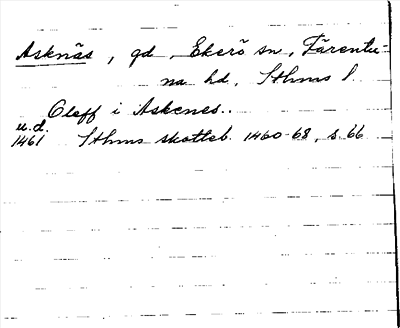 Asknäs, gd, Ekerö sn, Färentu-
na hd, Sthms l.
Oleff i Askenes..
u.d.
1461 Sthms skotteb. 1460-68, s. 66